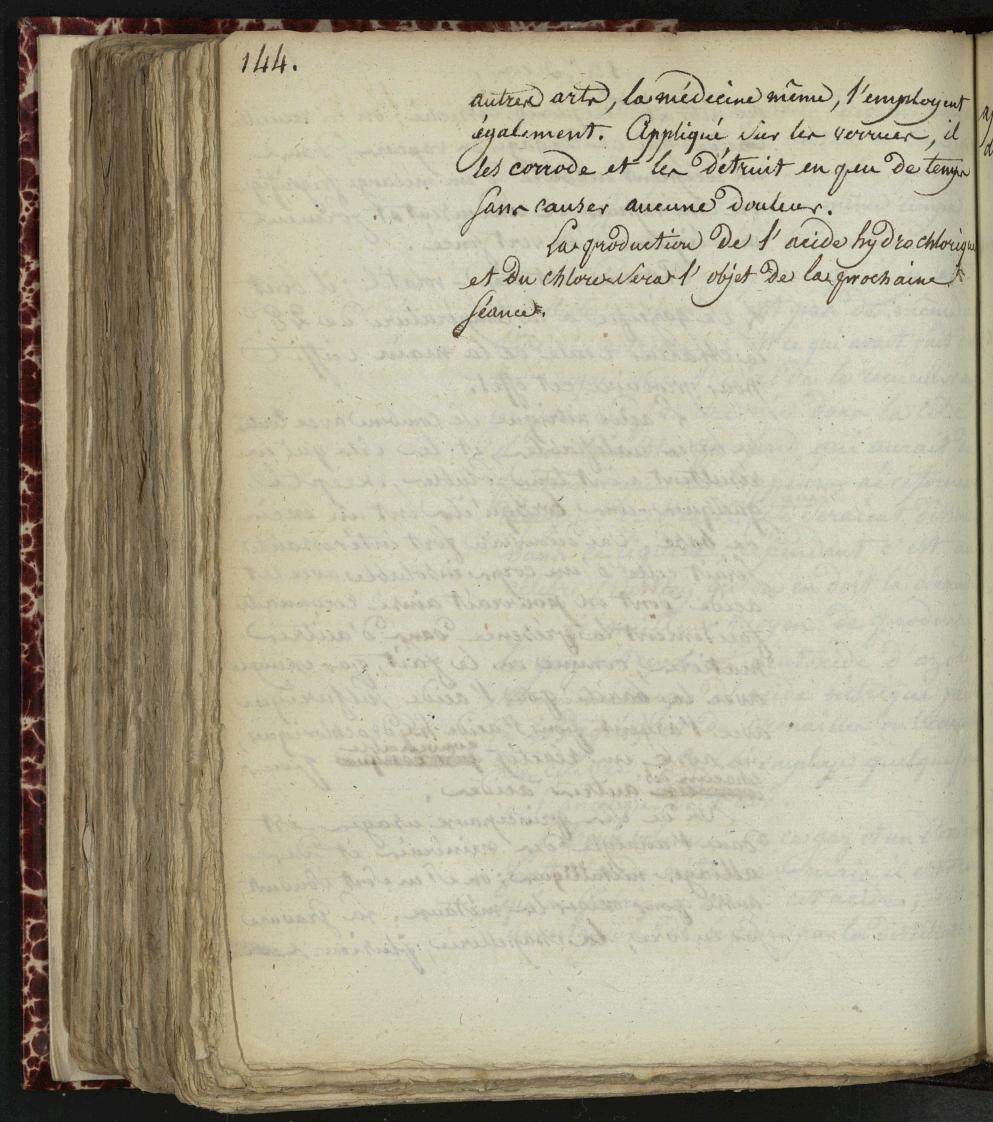 144.
autres arts, la médecine même, l'employent
également. Appliqué sur les verrues, il
les corrode et les détruit en peu de temps
sans causer aucune douleur.
La production de l'acide hydrochlorique
et du chlore sera l'objet de la prochaine
séance.